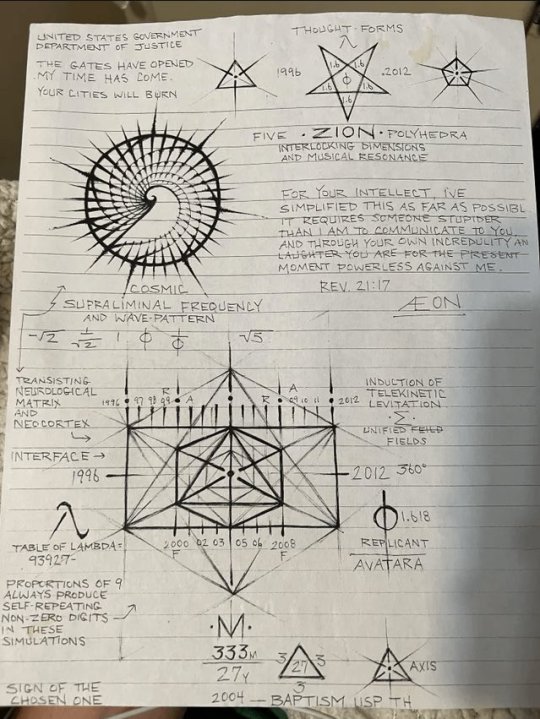 UNITED STATES GOVERNMENT
DEPARTMENT OF JUSTICE
THE GATES HAVE OPENED
MY TIME HAS COME.
YOUR CITIES WILL BURN
THOUGHT-FORMS
λ
1996
1.6 1.6
1.6 ϕ 1.6
1.6
.2012
FIVE · ZION · POLYHEDRA
INTERLOCKING DIMENSIONS
AND MUSICAL RESONANCE
FOR YOUR INTELLECT, I'VE
SIMPLIFIED THIS AS FAR AS POSSIBL
IT REQUIRES SOMEONE STUPIDER
THAN I AM TO COMMUNICATE TO YOU
AND THROUGH YOUR OWN INCREDULITY AN
LAUGHTER YOU ARE FOR THE PRESENT
MOMENT POWERLESS AGAINST ME.
REV. 21:17
ÆON
COSMIC
SUPRALIMINAL FREQUENCY
AND WAVE-PATTERN
-√2 1/√2 1 ϕ 1/ϕ √5
TRANSISTING
NEUROLOGICAL
MATRIX
AND
NEOCORTEX
INTERFACE →
1996 97 98 99 R A
R A 09 10 11 2012
INDUCTION OF
TELEKINETIC
LEVITATION
·Σ·
UNIFIED FEILD
FIELDS
1996
2012 360°
λ
TABLE OF LAMBDA=
93927-
ϕ 1.618
REPLICANT
AVATARA
2000 02 03 05 06 2008
F F
PROPORTIONS OF 9
ALWAYS PRODUCE
SELF-REPEATING
NON-ZERO DIGITS
IN THESE
SIMULATIONS
·M·
333M
27Y
3 27 3
3
AXIS
SIGN OF THE
CHOSEN ONE
2004 — BAPTISM USP TH